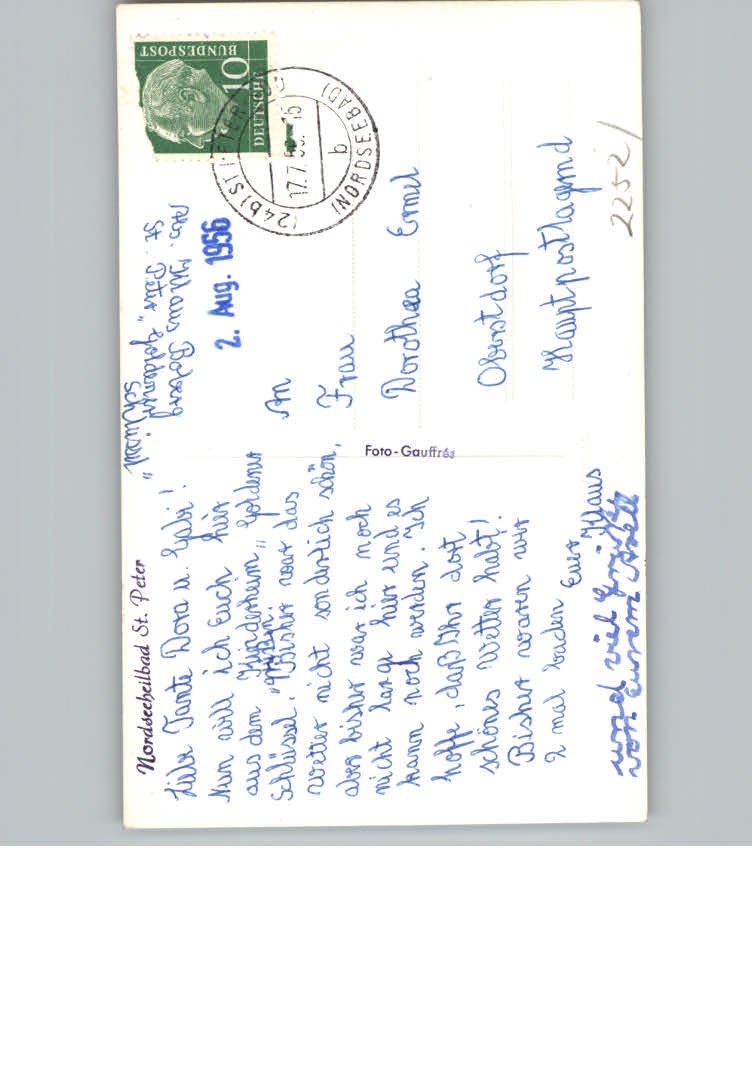 Nordseeheilbad St. Peter
Liebe Tante Dora u. Gabi!
Nun will ich Euch hier
aus dem Kinderheim „Goldener
Schlüssel“ . Bisher war das
Wetter nicht sonderlich schön,
aber bisher war ich noch
nicht lange hier und es
kann noch werden. Ich
hoffe, daß Ihr dort
schönes Wetter habt!
Bisher waren wir
2 mal baden Euer Klaus
und viel Grüße
von Eurem
Foto-Gauffrés
Abs. Klaus
St. Peter „Goldener
Schlüssel“
2. Aug. 1956
DEUTSCHE
BUNDESPOST
10
(24b) ST. PETER
17.7.56.-16
b
(NORDSEEBAD)
An
Frau
Dorothea Ermel
Oberstdorf
Hauptpostlagernd
2252/